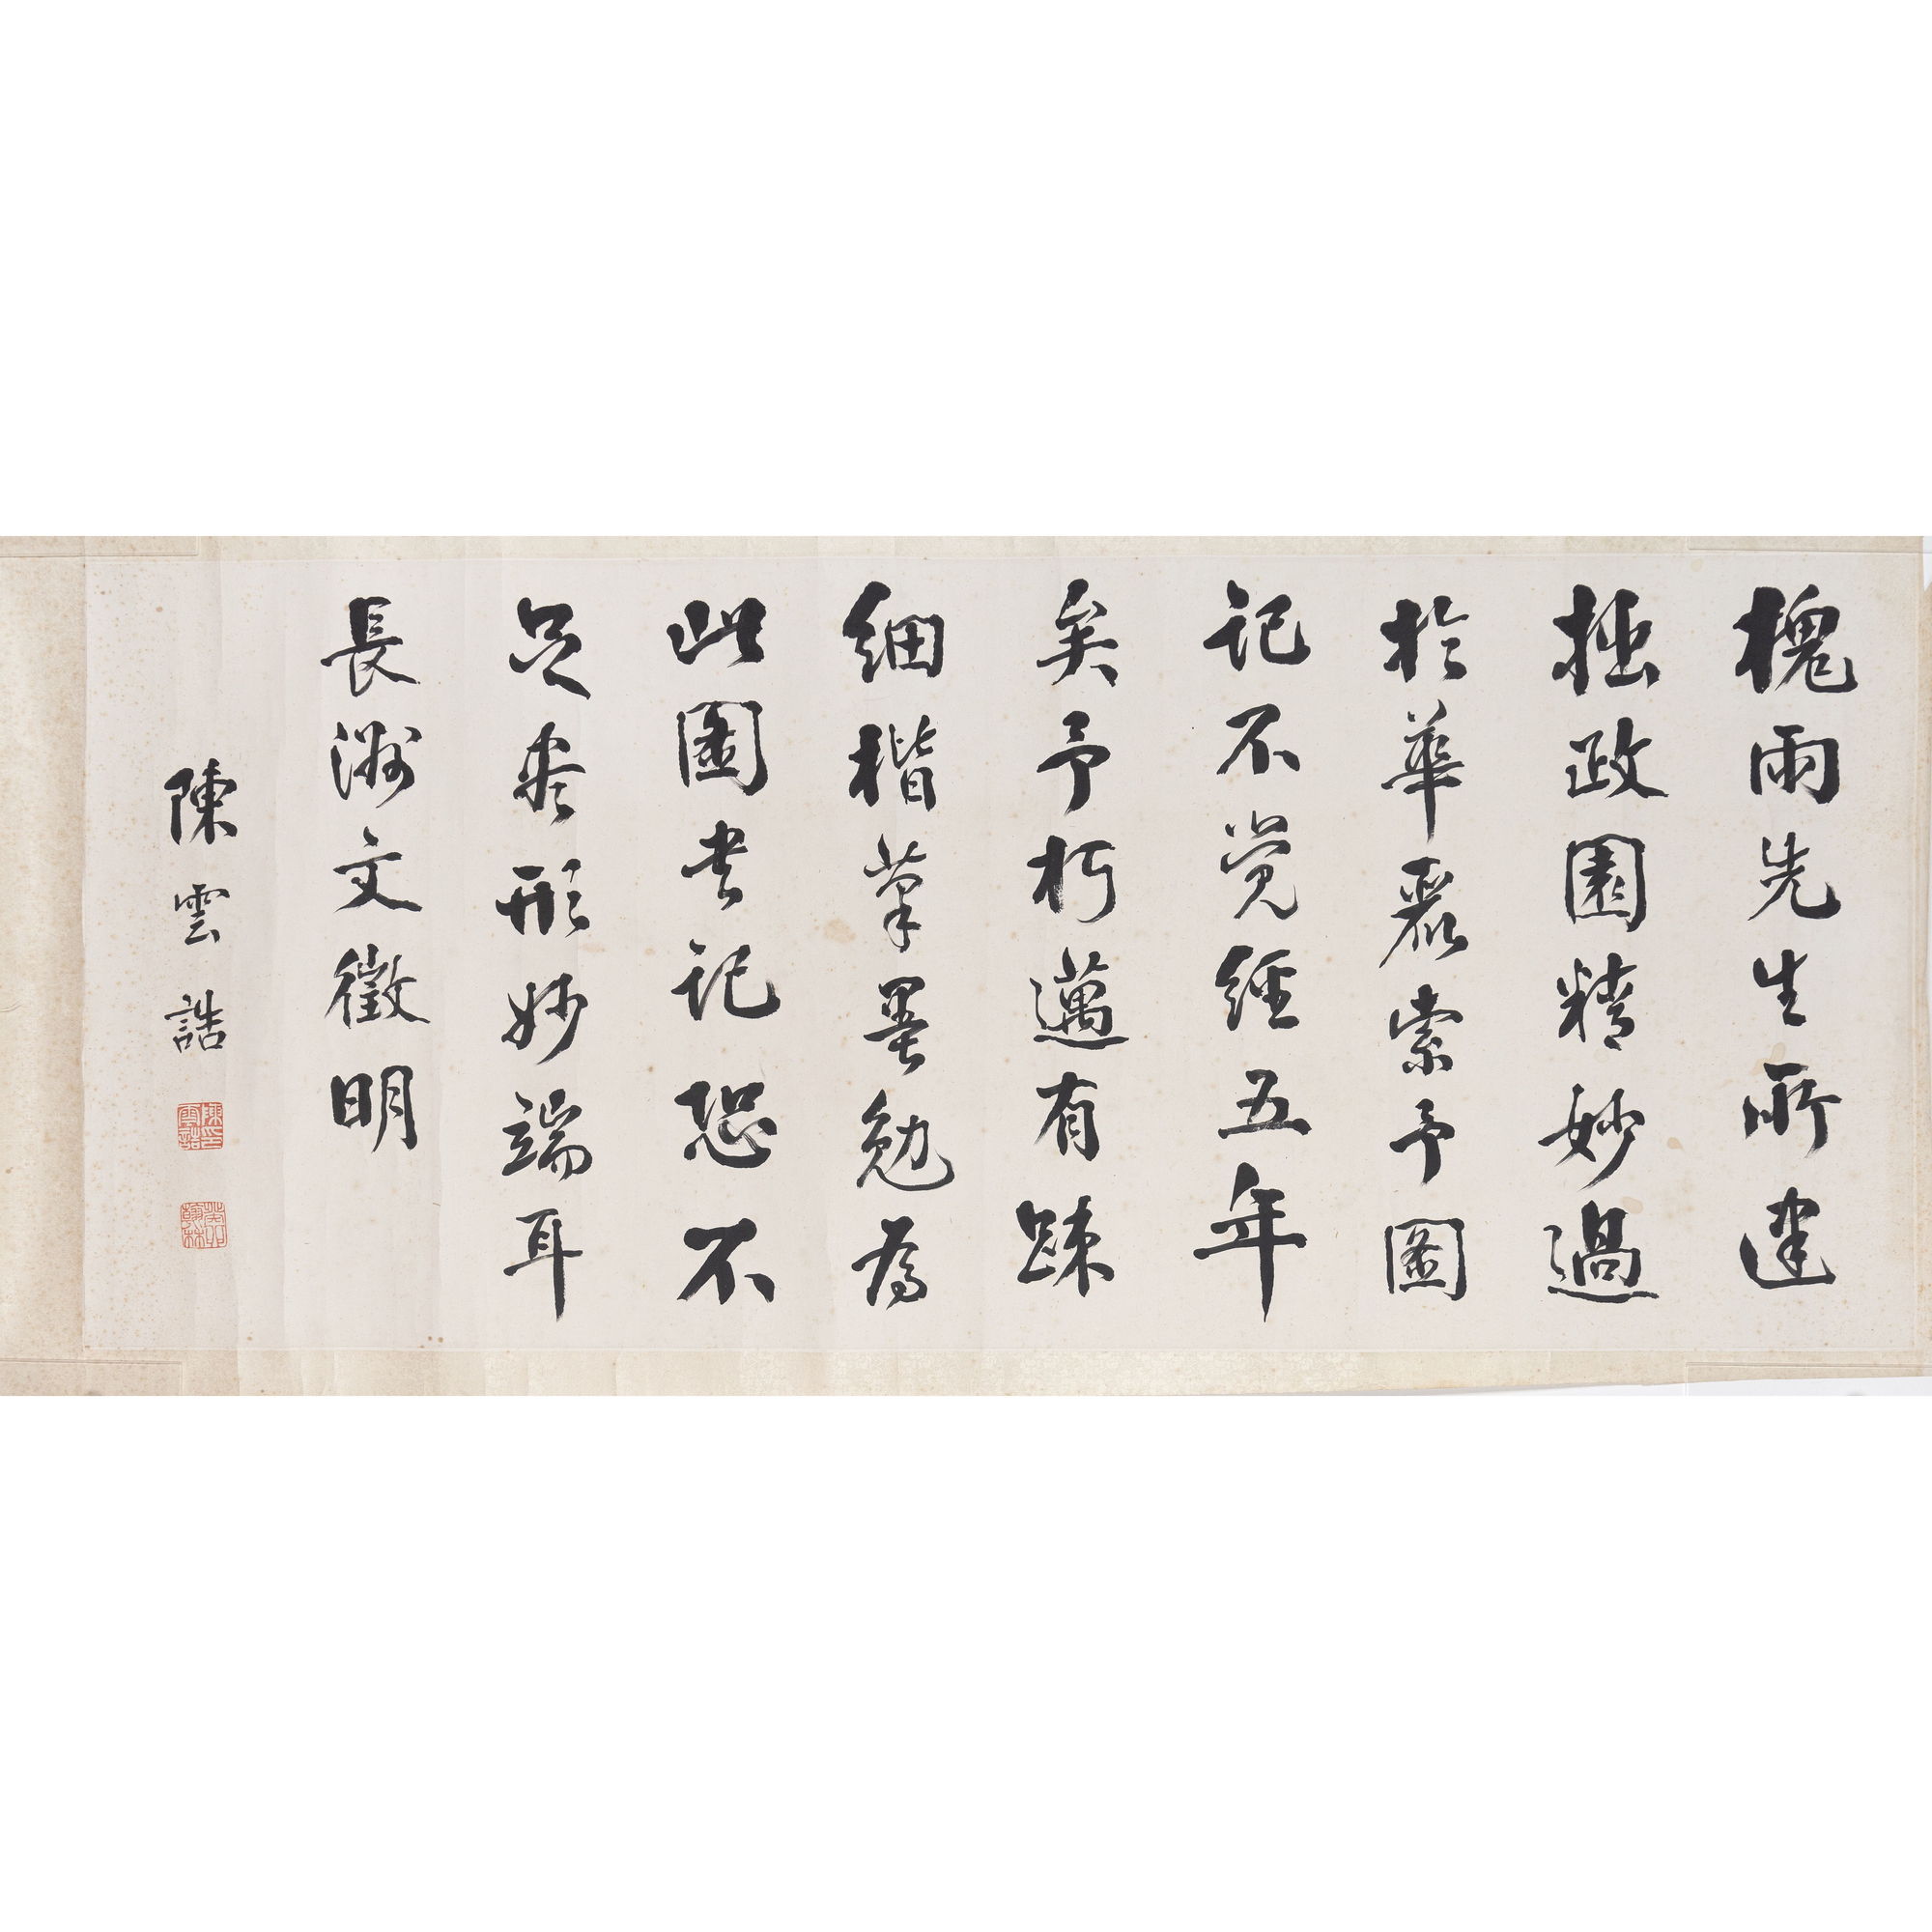 槐雨先生所建
拙政園精妙過
於華麗索予圖
記不覺經五年
矣予朽邁有踈
細楷筆墨勉為
此圖書記恐不
足盡形妙端耳
長洲文徵明
陳雲誥
陳印雲誥
癸卯翰林